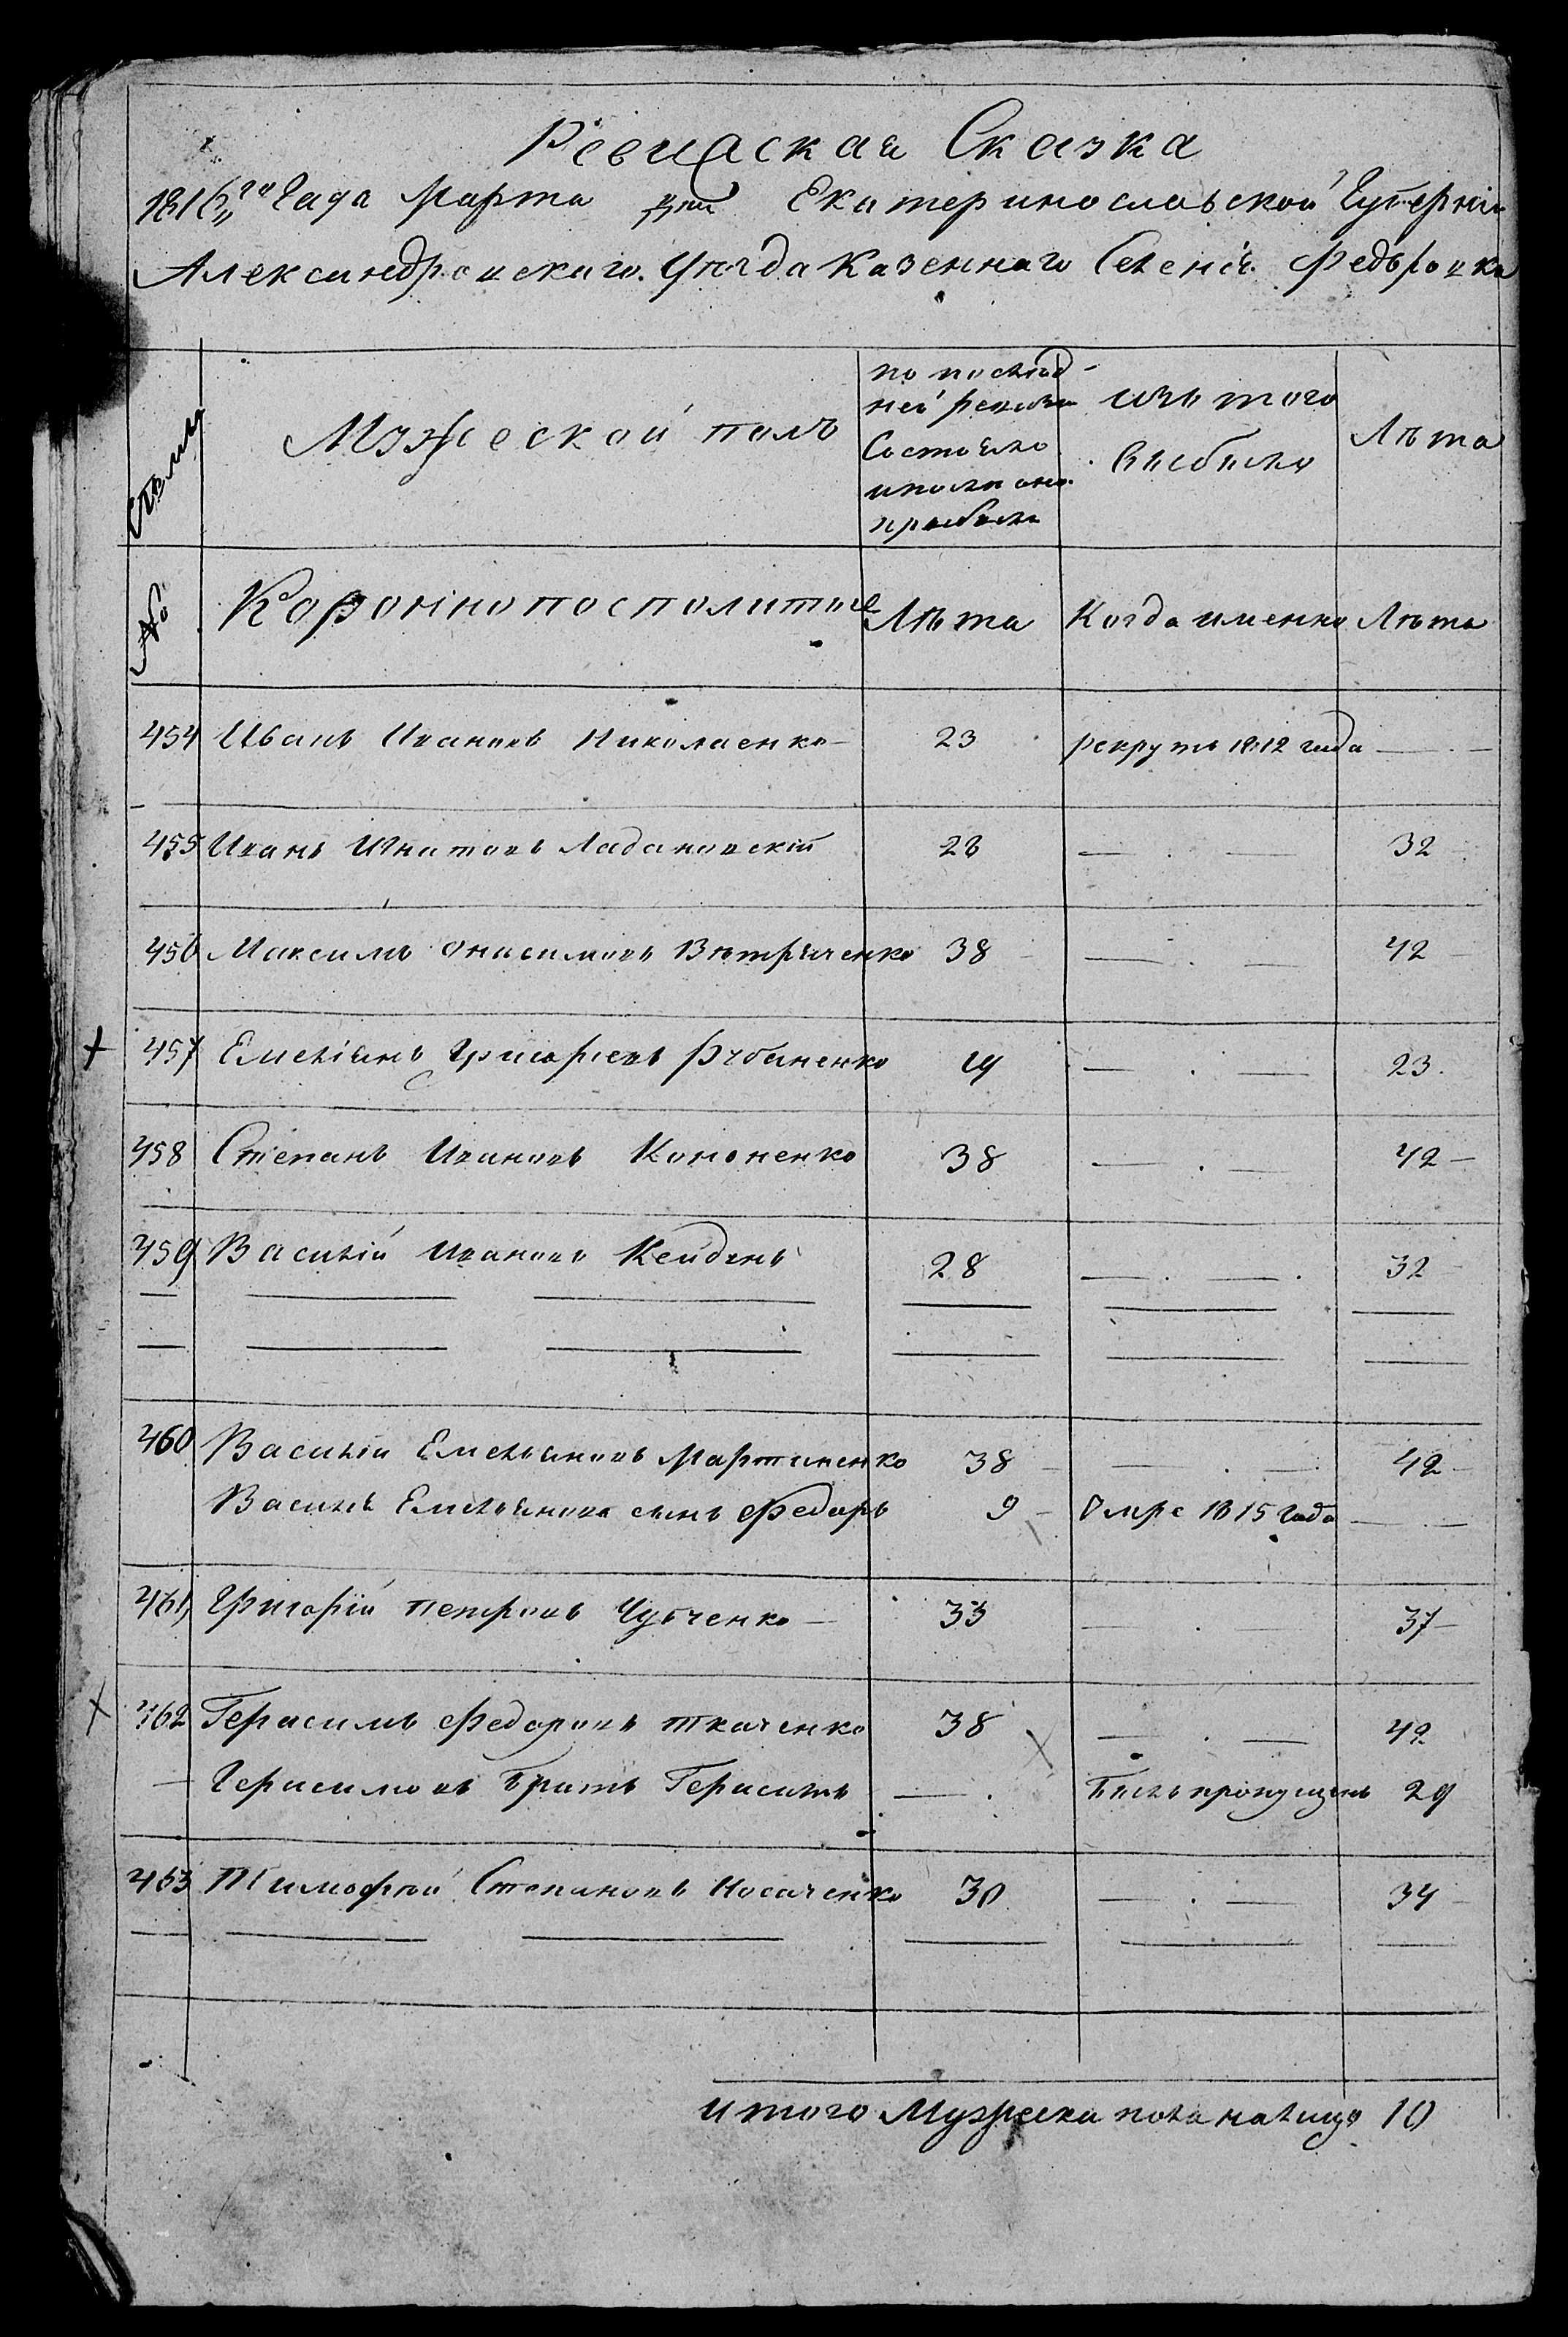 Ревиская Сказка
1816го Года Марта дня Екатеринославской Губернiи
Александровскаго Уезда Казеннаго Селенiя Федоровка
Семьи Мужеской полъ по послѣд- ней ревизiи Состояло и после оной прибыло изъ того выбыло Лѣта
№ Коронно посполитые Лѣта Когда именно Лѣта
454 Иванъ Ивановъ Николаенко 23 рекрутъ 1812 года — . —
455 Иванъ Игнатовъ Ладановскiй 28 — . — 32
456 Максимъ Онисимовъ Вѣтряченко 38 — . — 42
457 Емелiянъ Григорiевъ Рубаненко 19 — . — 23
458 Степанъ Ивановъ Кононенко 38 — . — 42
459 Василiй Ивановъ Кейданъ 28 — . — 32
460 Василiй Емельяновъ Мартиненко 38 — . — 42
Василя Емельянова сынъ Федоръ 9 Умре 1815 Года — . —
461 Григорiй Петровъ Чубченко 33 — . — 37
462 Герасимъ Федоровъ Ткаченко 38 — . — 42
Герасимовъ братъ Герасимъ — . Былъ пропущенъ 29
463 Тимофѣй Степановъ Носаченко 30 — . — 34
Итого Мужеска пола налицо 10